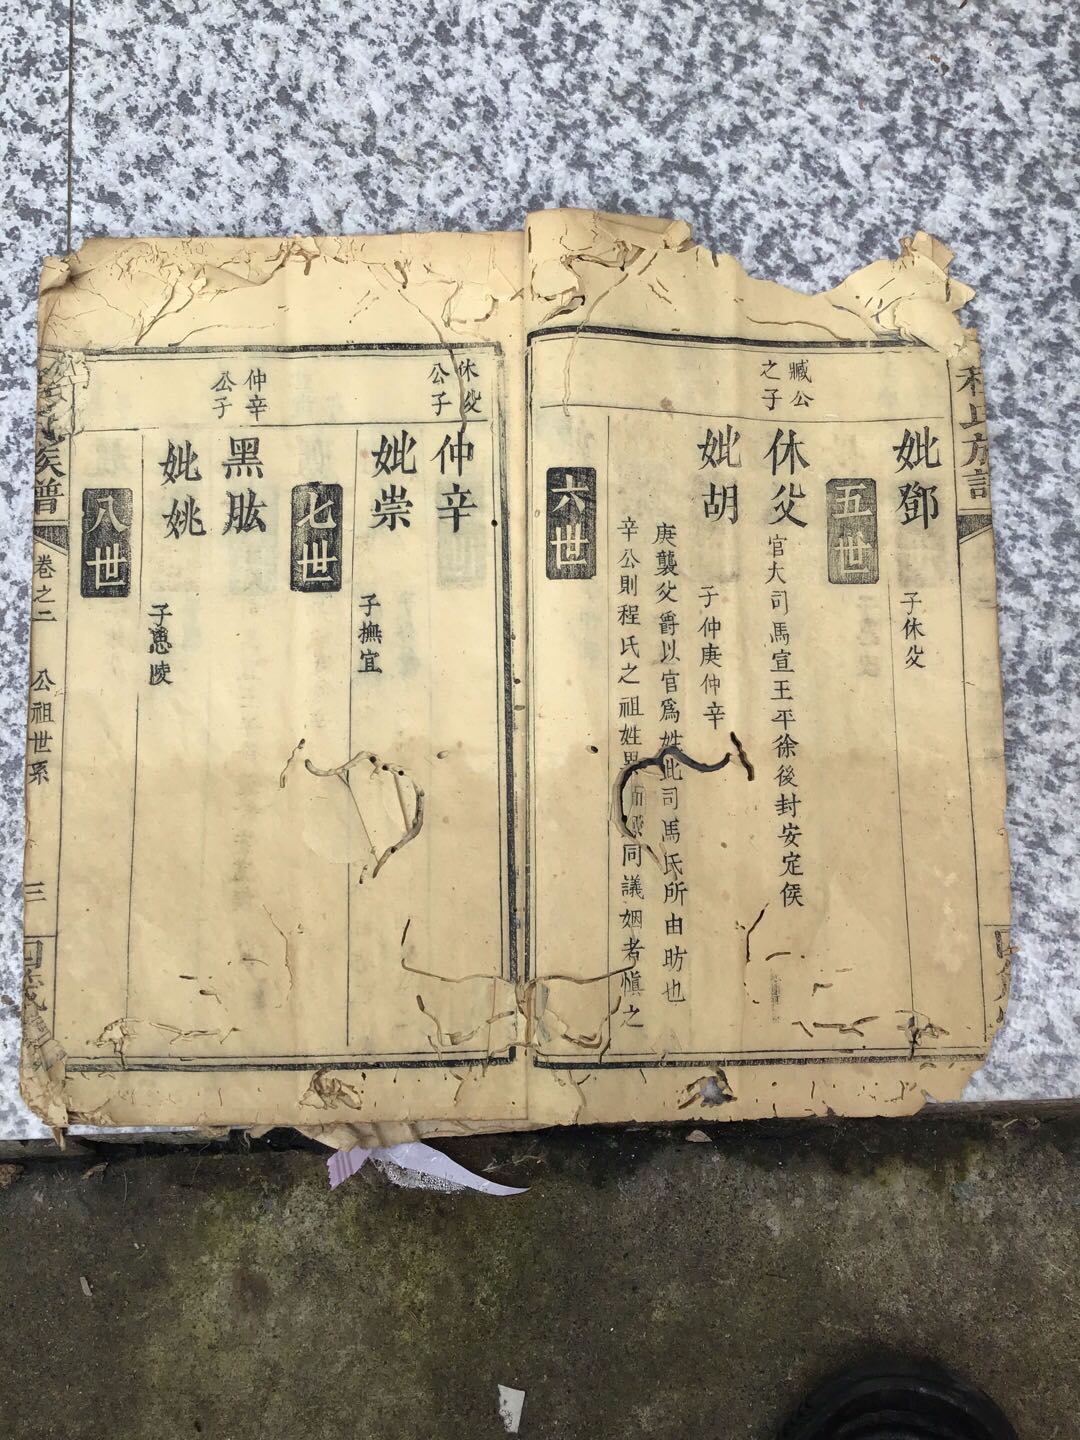 妣鄧
子休父
五世
臧公
之子
休父
官大司馬宣王平徐後封安定侯
妣胡
子仲庚仲辛
庚襲父爵以官爲姓此司馬氏所由昉也
辛公則程氏之祖姓異同議姻者慎之
六世
休父
公子
仲辛
妣崇
子撫宜
七世
仲辛
公子
黑肱
妣姚
子恖陵
八世
族譜
卷之二
公祖世系
三